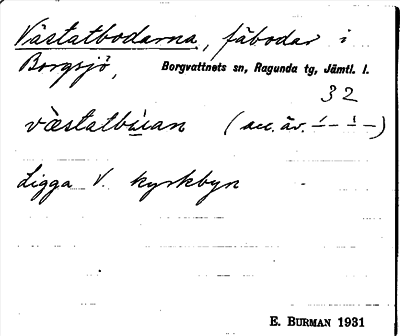 Västatbodarna, fäbodar i
Borgsjö, Borgvattnets sn, Ragunda tg, Jämtl. l.
32
västatbùan (acc. äv. –́ – –̀ –)
Ligga V. kyrkbyn
E. BURMAN 1931